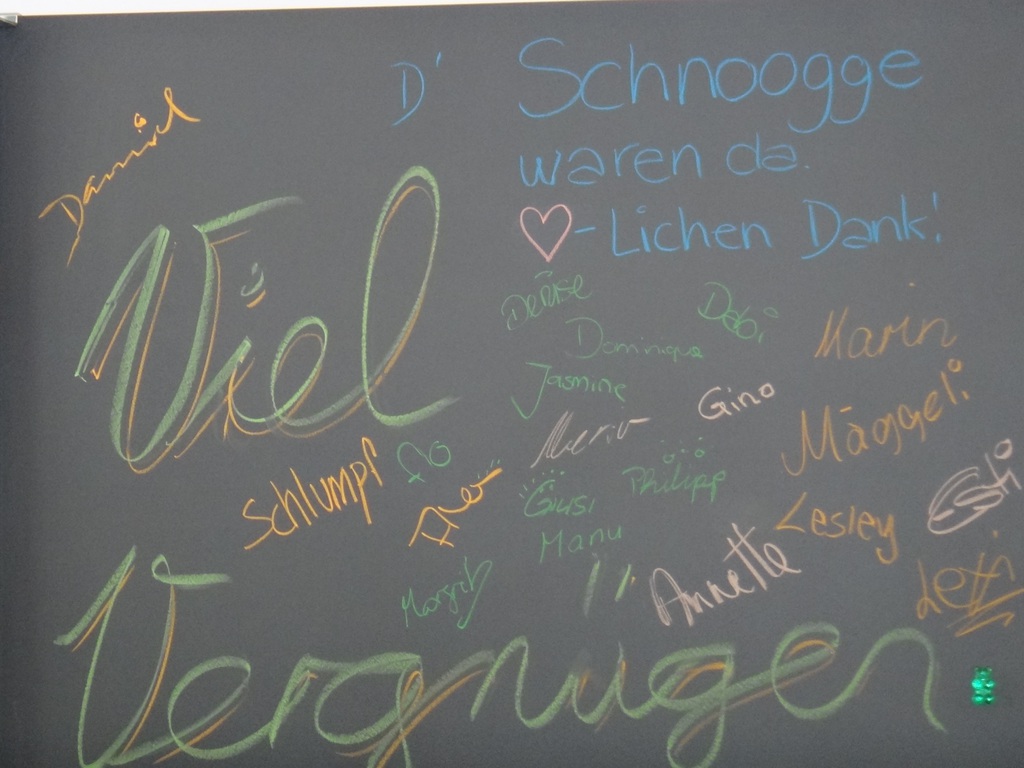 D' Schnoogge
waren da.
♡-Lichen Dank!
Daniel
Viel
Denise
Debi
Dominique
Karin
Jasmine
Gino
Mäggeli
Schlumpf
Philipp
Giusi
Manu
Lesley
Annette
Margrit
Vergnügen